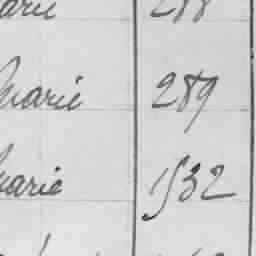 Marie 288
Marie 289
Marie 1532